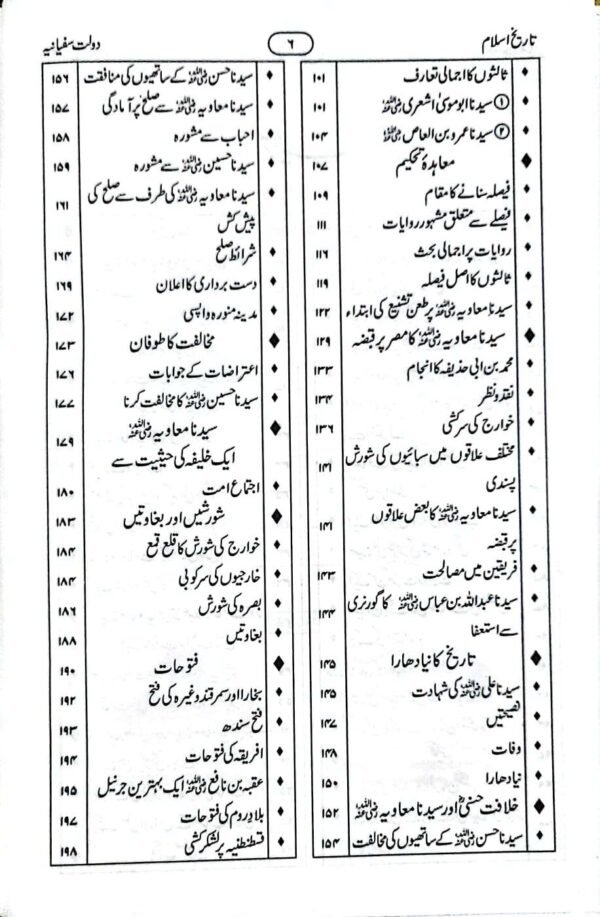 تاریخ اسلام ۶ دولت سفیانیہ
♦ ثالثوں کا اجمالی تعارف ۱۰۱
♦ ① سیدنا ابو موسیٰ اشعری رضی اللہ عنہ ۱۰۱
♦ ② سیدنا عمرو بن العاص رضی اللہ عنہ ۱۰۴
◆ معاہدۂ تحکیم ۱۰۷
♦ فیصلہ سنانے کا مقام ۱۰۹
♦ فیصلے سے متعلق مشہور روایات ۱۱۱
♦ روایات پر اجمالی بحث ۱۱۶
♦ ثالثوں کا اصل فیصلہ ۱۱۹
♦ سیدنا معاویہ رضی اللہ عنہ پر طعن تشنیع کی ابتداء ۱۲۲
◆ سیدنا معاویہ رضی اللہ عنہ کا مصر پر قبضہ ۱۲۹
♦ محمد بن ابی حذیفہ کا انجام ۱۳۳
♦ نقد و نظر ۱۳۴
♦ خوارج کی سرکشی ۱۳۶
♦ مختلف علاقوں میں سبائیوں کی شورش ۱۴۱
پسندی
♦ سیدنا معاویہ رضی اللہ عنہ کا بعض علاقوں ۱۴۱
پر قبضہ
♦ فریقین میں مصالحت ۱۴۳
♦ سیدنا عبداللہ بن عباس رضی اللہ عنہ کا گورنری ۱۴۴
سے استعفا
◆ تاریخ کا نیا دھارا ۱۴۵
♦ سیدنا علی رضی اللہ عنہ کی شہادت ۱۴۵
♦ نصیحتیں ۱۴۷
♦ وفات ۱۴۸
♦ نیا دھارا ۱۵۰
◆ خلافت حسنؓ اور سیدنا معاویہ رضی اللہ عنہ ۱۵۲
♦ سیدنا حسن رضی اللہ عنہ کے ساتھیوں کی مخالفت ۱۵۴
♦ سیدنا حسن رضی اللہ عنہ کے ساتھیوں کی منافقت ۱۵۶
♦ سیدنا معاویہ رضی اللہ عنہ سے صلح پر آمادگی ۱۵۷
♦ احباب سے مشورہ ۱۵۸
♦ سیدنا حسین رضی اللہ عنہ سے مشورہ ۱۵۹
♦ سیدنا معاویہ رضی اللہ عنہ کی طرف سے صلح کی ۱۶۱
پیش کش
♦ شرائط صلح ۱۶۴
♦ دست برداری کا اعلان ۱۶۹
♦ مدینہ منورہ واپسی ۱۷۲
◆ مخالفت کا طوفان ۱۷۳
♦ اعتراضات کے جوابات ۱۷۶
♦ سیدنا حسین رضی اللہ عنہ کا مخالفت کرنا ۱۷۷
◆ سیدنا معاویہ رضی اللہ عنہ ۱۷۹
ایک خلیفہ کی حیثیت سے
♦ اجتماع امت ۱۸۰
◆ شورشیں اور بغاوتیں ۱۸۳
♦ خوارج کی شورش کا قلع قمع ۱۸۴
♦ خارجیوں کی سرکوبی ۱۸۴
♦ بصرہ کی شورش ۱۸۶
♦ بغاوتیں ۱۸۸
◆ فتوحات ۱۹۰
♦ بخارا اور سمرقند وغیرہ کی فتح ۱۹۲
♦ فتح سندھ ۱۹۳
♦ افریقہ کی فتوحات ۱۹۴
♦ عقبہ بن نافع رضی اللہ عنہ ایک بہترین جرنیل ۱۹۵
♦ بلادِ روم کی فتوحات ۱۹۷
♦ قسطنطنیہ پر لشکر کشی ۱۹۸